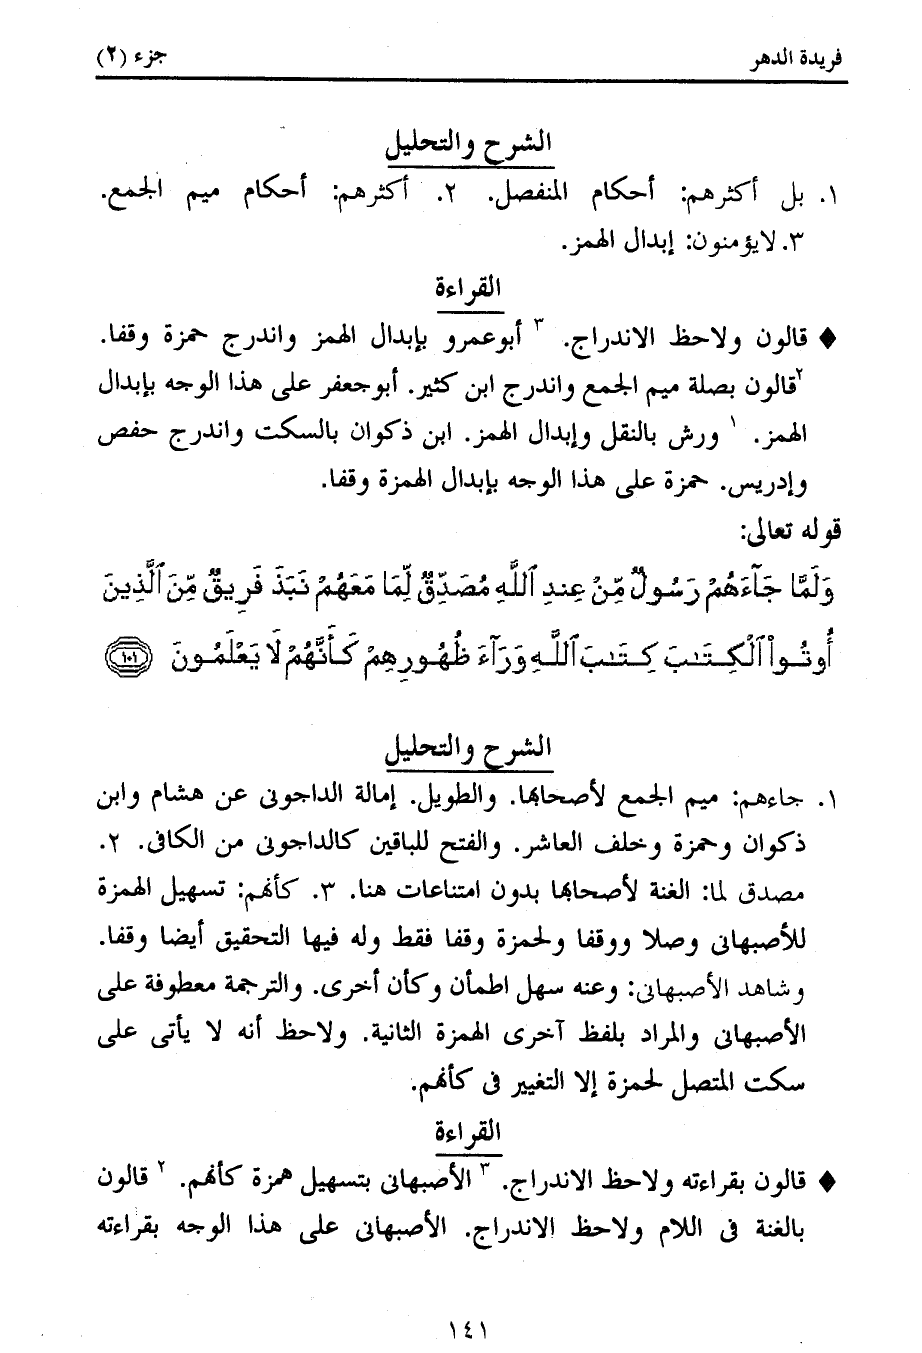 فريدة الدهر
جزء (٢)
الشرح والتحليل
١. بل أكثرهم: أحكام المنفصل. ٢. أكثرهم: أحكام ميم الجمع.
٣. لايؤمنون: إبدال الهمز.
القراءة
♦ قالون ولاحظ الاندراج. ٣ أبوعمرو بإبدال الهمز واندرج حمزة وقفا.
٢قالون بصلة ميم الجمع واندرج ابن كثير. أبوجعفر على هذا الوجه بإبدال
الهمز. ١ ورش بالنقل وإبدال الهمز. ابن ذكوان بالسكت واندرج حفص
وإدريس. حمزة على هذا الوجه بإبدال الهمزة وقفا.
قوله تعالى:
وَلَمَّا جَآءَهُمْ رَسُولٌ مِّنْ عِندِ ٱللَّهِ مُصَدِّقٌ لِّمَا مَعَهُمْ نَبَذَ فَرِيقٌ مِّنَ ٱلَّذِينَ
أُوتُوا۟ ٱلْكِتَٰبَ كِتَٰبَ ٱللَّهِ وَرَآءَ ظُهُورِهِمْ كَأَنَّهُمْ لَا يَعْلَمُونَ ١٠١
الشرح والتحليل
١. جاءهم: ميم الجمع لأصحابها. والطويل. إمالة الداجونى عن هشام وابن
ذكوان وحمزة وخلف العاشر. والفتح للباقين كالداجونى من الكافى. ٢.
مصدق لما: الغنة لأصحابها بدون امتناعات هنا. ٣. كأنهم: تسهيل الهمزة
للأصبهانى وصلا ووقفا ولحمزة وقفا فقط وله فيها التحقيق أيضا وقفا.
وشاهد الأصبهانى: وعنه سهل اطمأن وكأن أخرى. والترجمة معطوفة على
الأصبهانى والمراد بلفظ آخرى الهمزة الثانية. ولاحظ أنه لا يأتى على
سكت المتصل لحمزة إلا التغيير فى كأنهم.
القراءة
♦ قالون بقراءته ولاحظ الاندراج. ٣ الأصبهانى بتسهيل همزة كأنهم. ٢ قالون
بالغنة فى اللام ولاحظ الاندراج. الأصبهانى على هذا الوجه بقراءته
١٤١